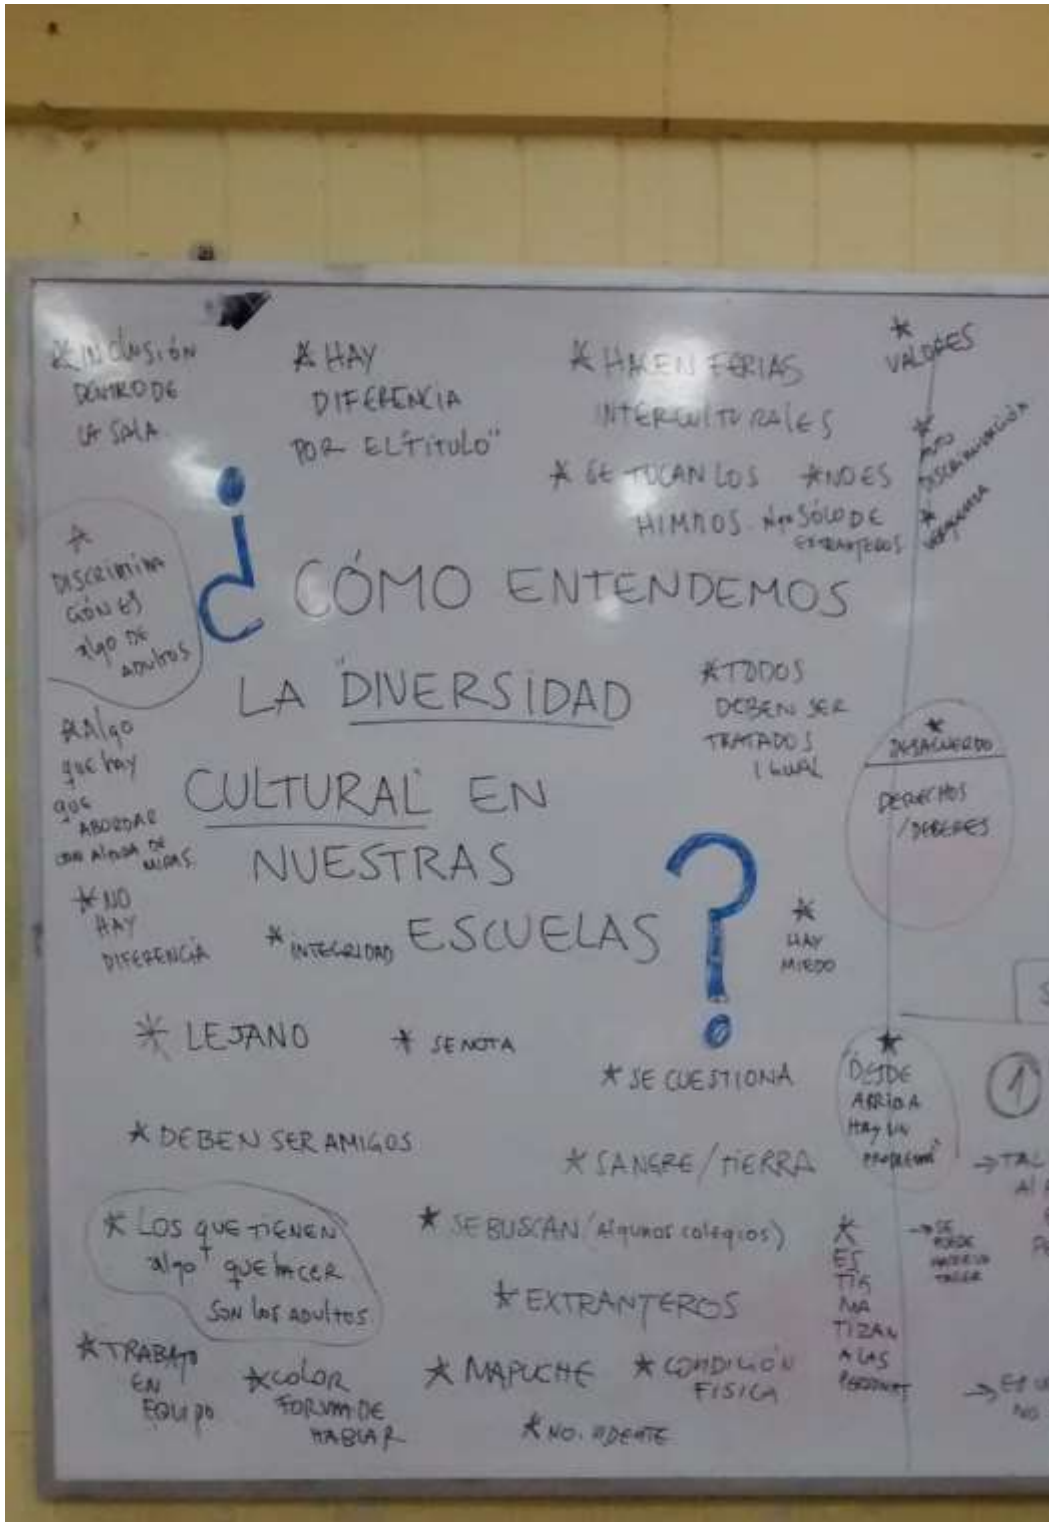 * INCLUSIÓN
DENTRO DE
LA SALA.
* HAY
DIFERENCIA
POR EL "TÍTULO"
* HACEN FERIAS
INTERCULTURALES
* SE TOCAN LOS
HIMNOS.
* NO ES
algo SÓLO DE
EXTRANJEROS
* VALORES
* AUTO
DISCRIMINACIÓN
* VERGÜENZA
* DISCRIMINA
CIÓN ES
algo DE
ADULTOS
¿ CÓMO ENTENDEMOS
LA "DIVERSIDAD
CULTURAL" EN
NUESTRAS
ESCUELAS ?
* TODOS
DEBEN SER
TRATADOS
IGUAL
* DESACUERDO
DERECHOS
/DEBERES
* Algo
que hay
que
ABORDAR
CON ALTURA DE
MIRAS.
* NO
HAY
DIFERENCIA
* INTEGRIDAD
* HAY
MIEDO
* LEJANO
* SE NOTA
* SE CUESTIONA
* "DESDE
ARRIBA
HAY UN
PROBLEMA"
1
* DEBEN SER AMIGOS
* SANGRE/TIERRA
→ TAL
* LOS QUE TIENEN
algo + QUE HACER
SON LOS ADULTOS
* SE BUSCAN (algunos colegios)
* EXTRANJEROS
* ES
TIG
MA
TIZAN
A LAS
PERSONAS
→ SE
PUEDE
TALLER
* TRABAJO
EN
EQUIPO
* COLOR
FORMA DE
HABLAR
* MAPUCHE
* CONDICIÓN
FÍSICA
NO